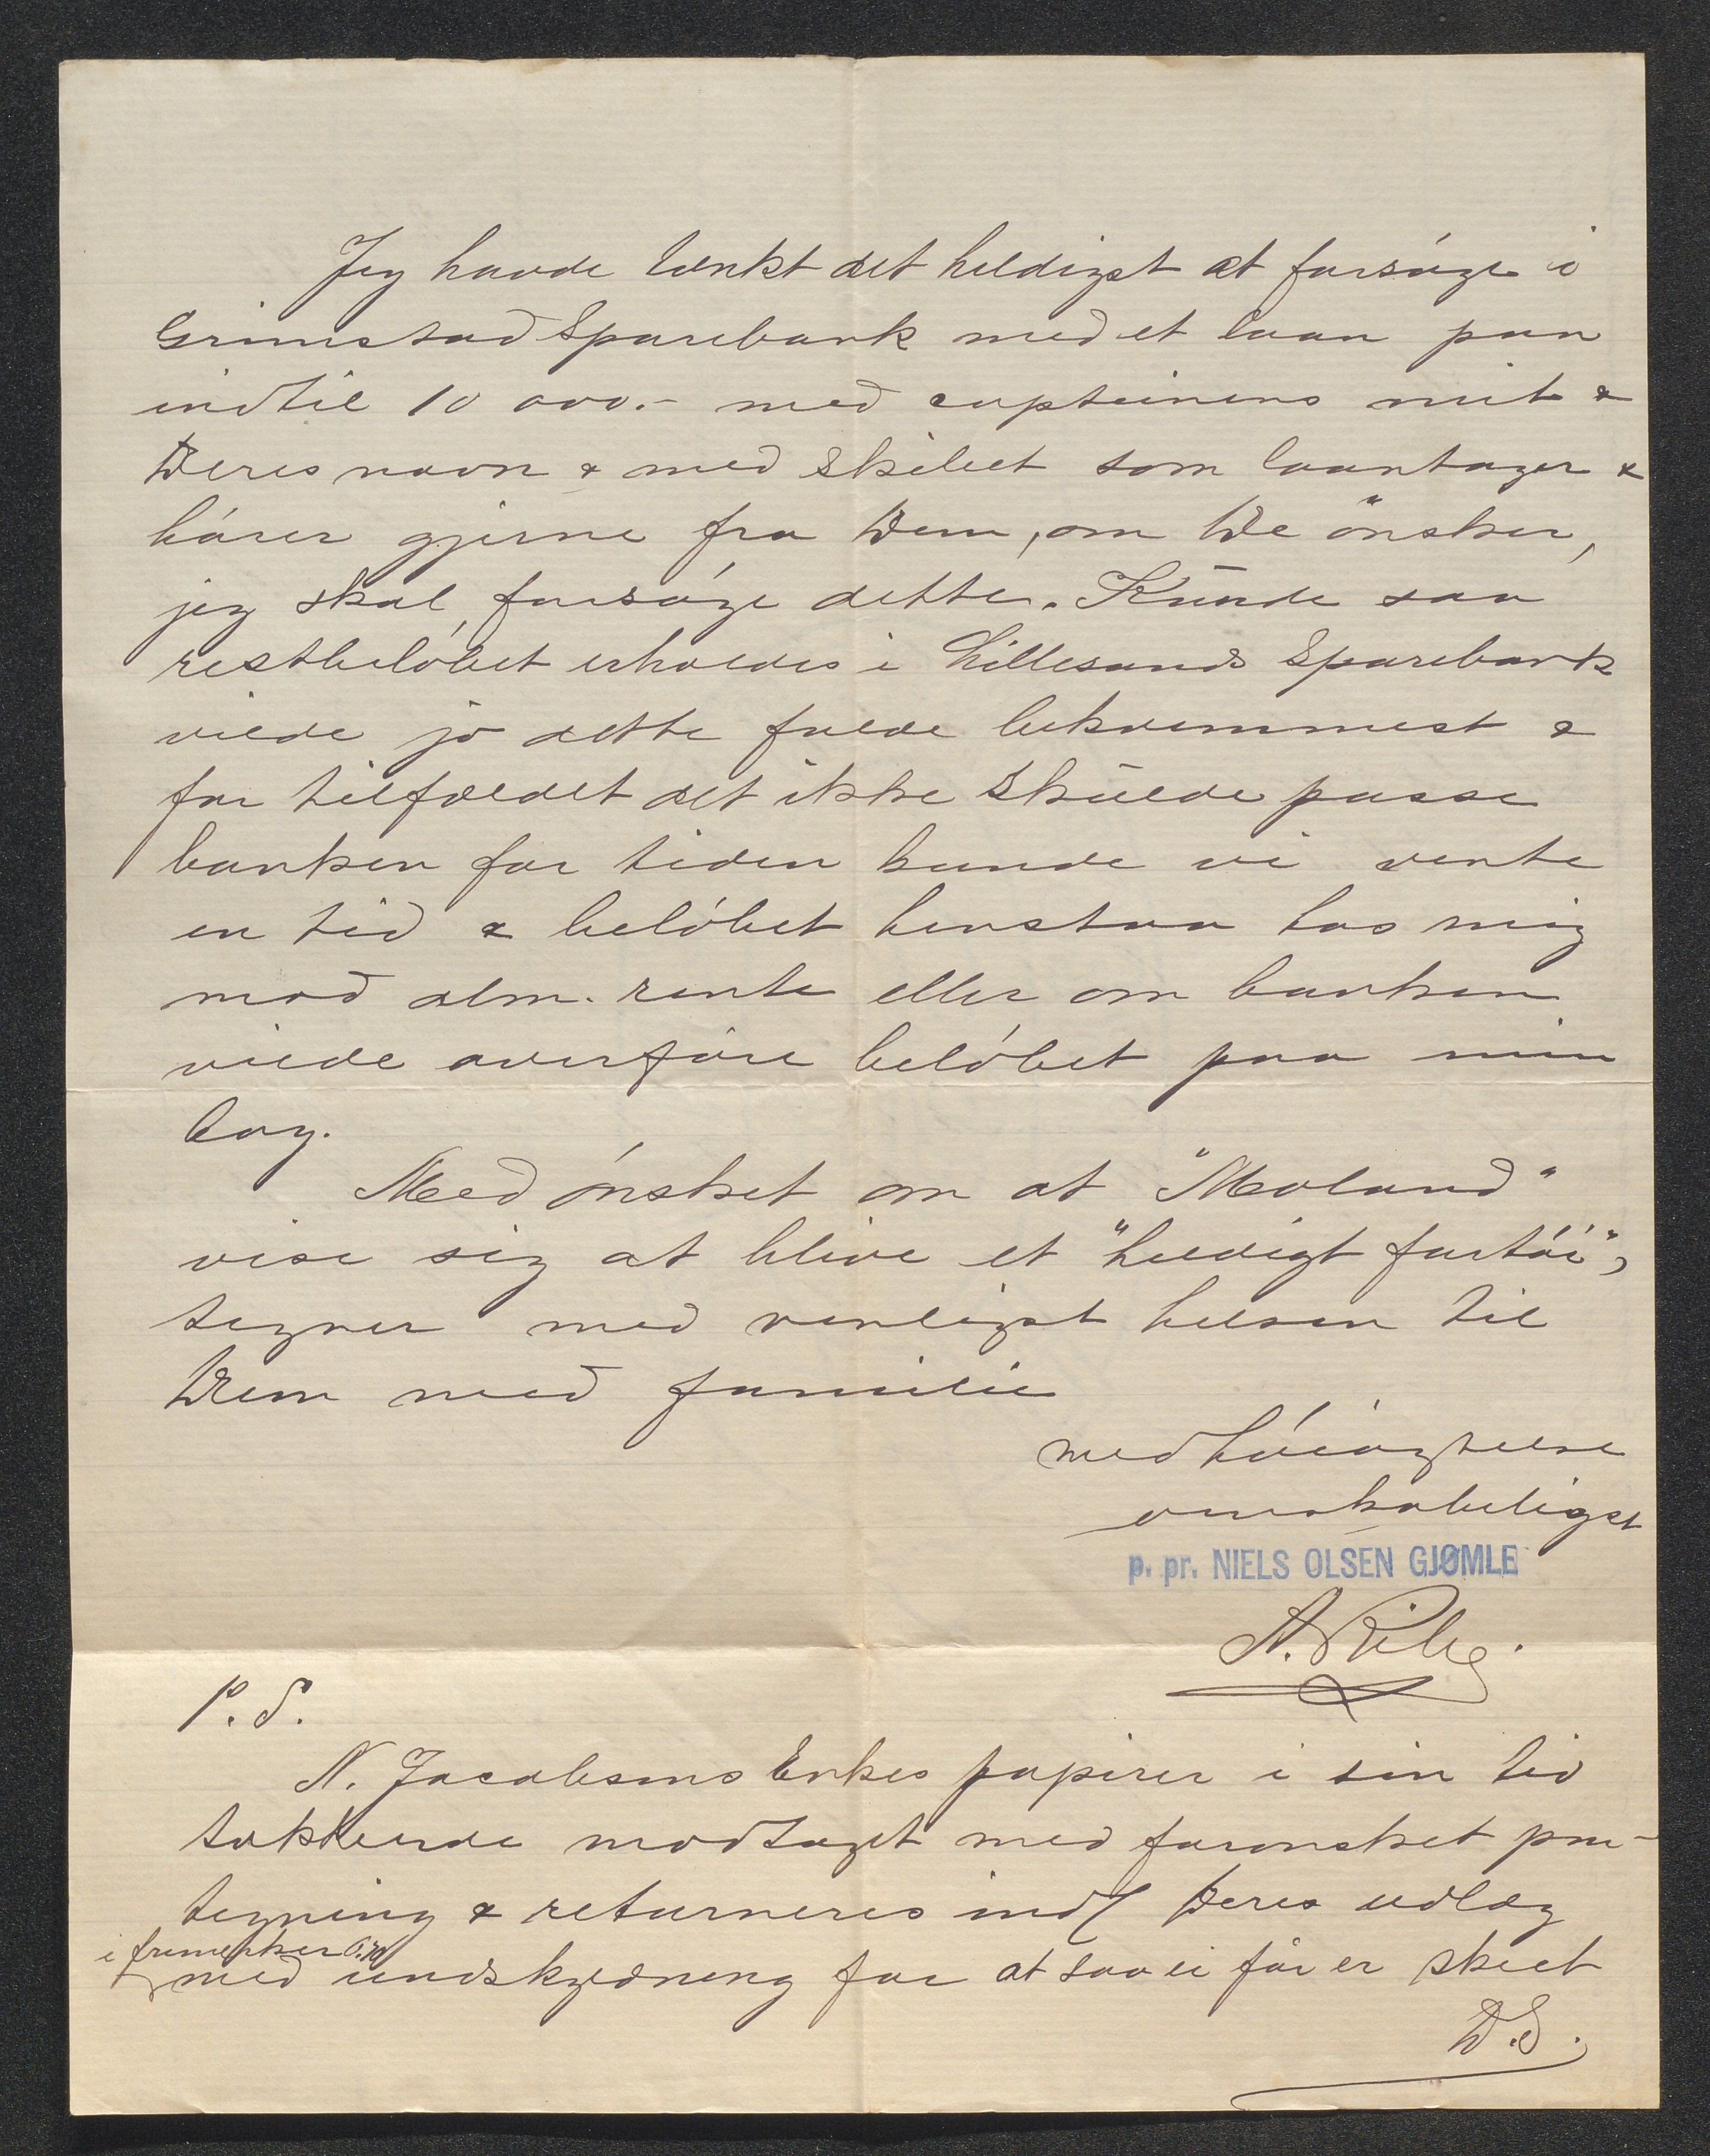 Jeg havde tænkt det heldigst at forsøge i
Grimstad Sparebank med et laan paa
indtil 10 000.- med capteinens mit &
Deres navn & med skibet som laantager &
hører gjerne fra Dem, om De ønsker,
jeg skal forsøge dette. Kunde saa
restbeløbet erholdes i Lillesands Sparebank
vilde jo dette falde bekvemmest &
for tilfældet det ikke skulde passe
banken for tiden kunde vi vente
en tid & beløbet henstaa hos mig
mod alm. rente eller om banken
vilde overføre beløbet paa min
bog.
Med ønsket om at "Moland"
vise sig at blive et "heldigt fartøi",
tegner med venligst hilsen til
Dem med familie
med høiagtelse
venskabeligst
p. pr. NIELS OLSEN GJØMLE
A.
P.S.
N. Jacobsens Enkes papirer i sin tid
takkende modtaget med forønsket paa-
tegning & returneres indl Deres udlæg
i frimerker 0.40
med undskyldning for at saa ei før er skeet
D.S.